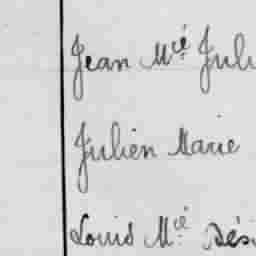 Jean Mcé Juli
Julien Marie
Louis Mcé Dési